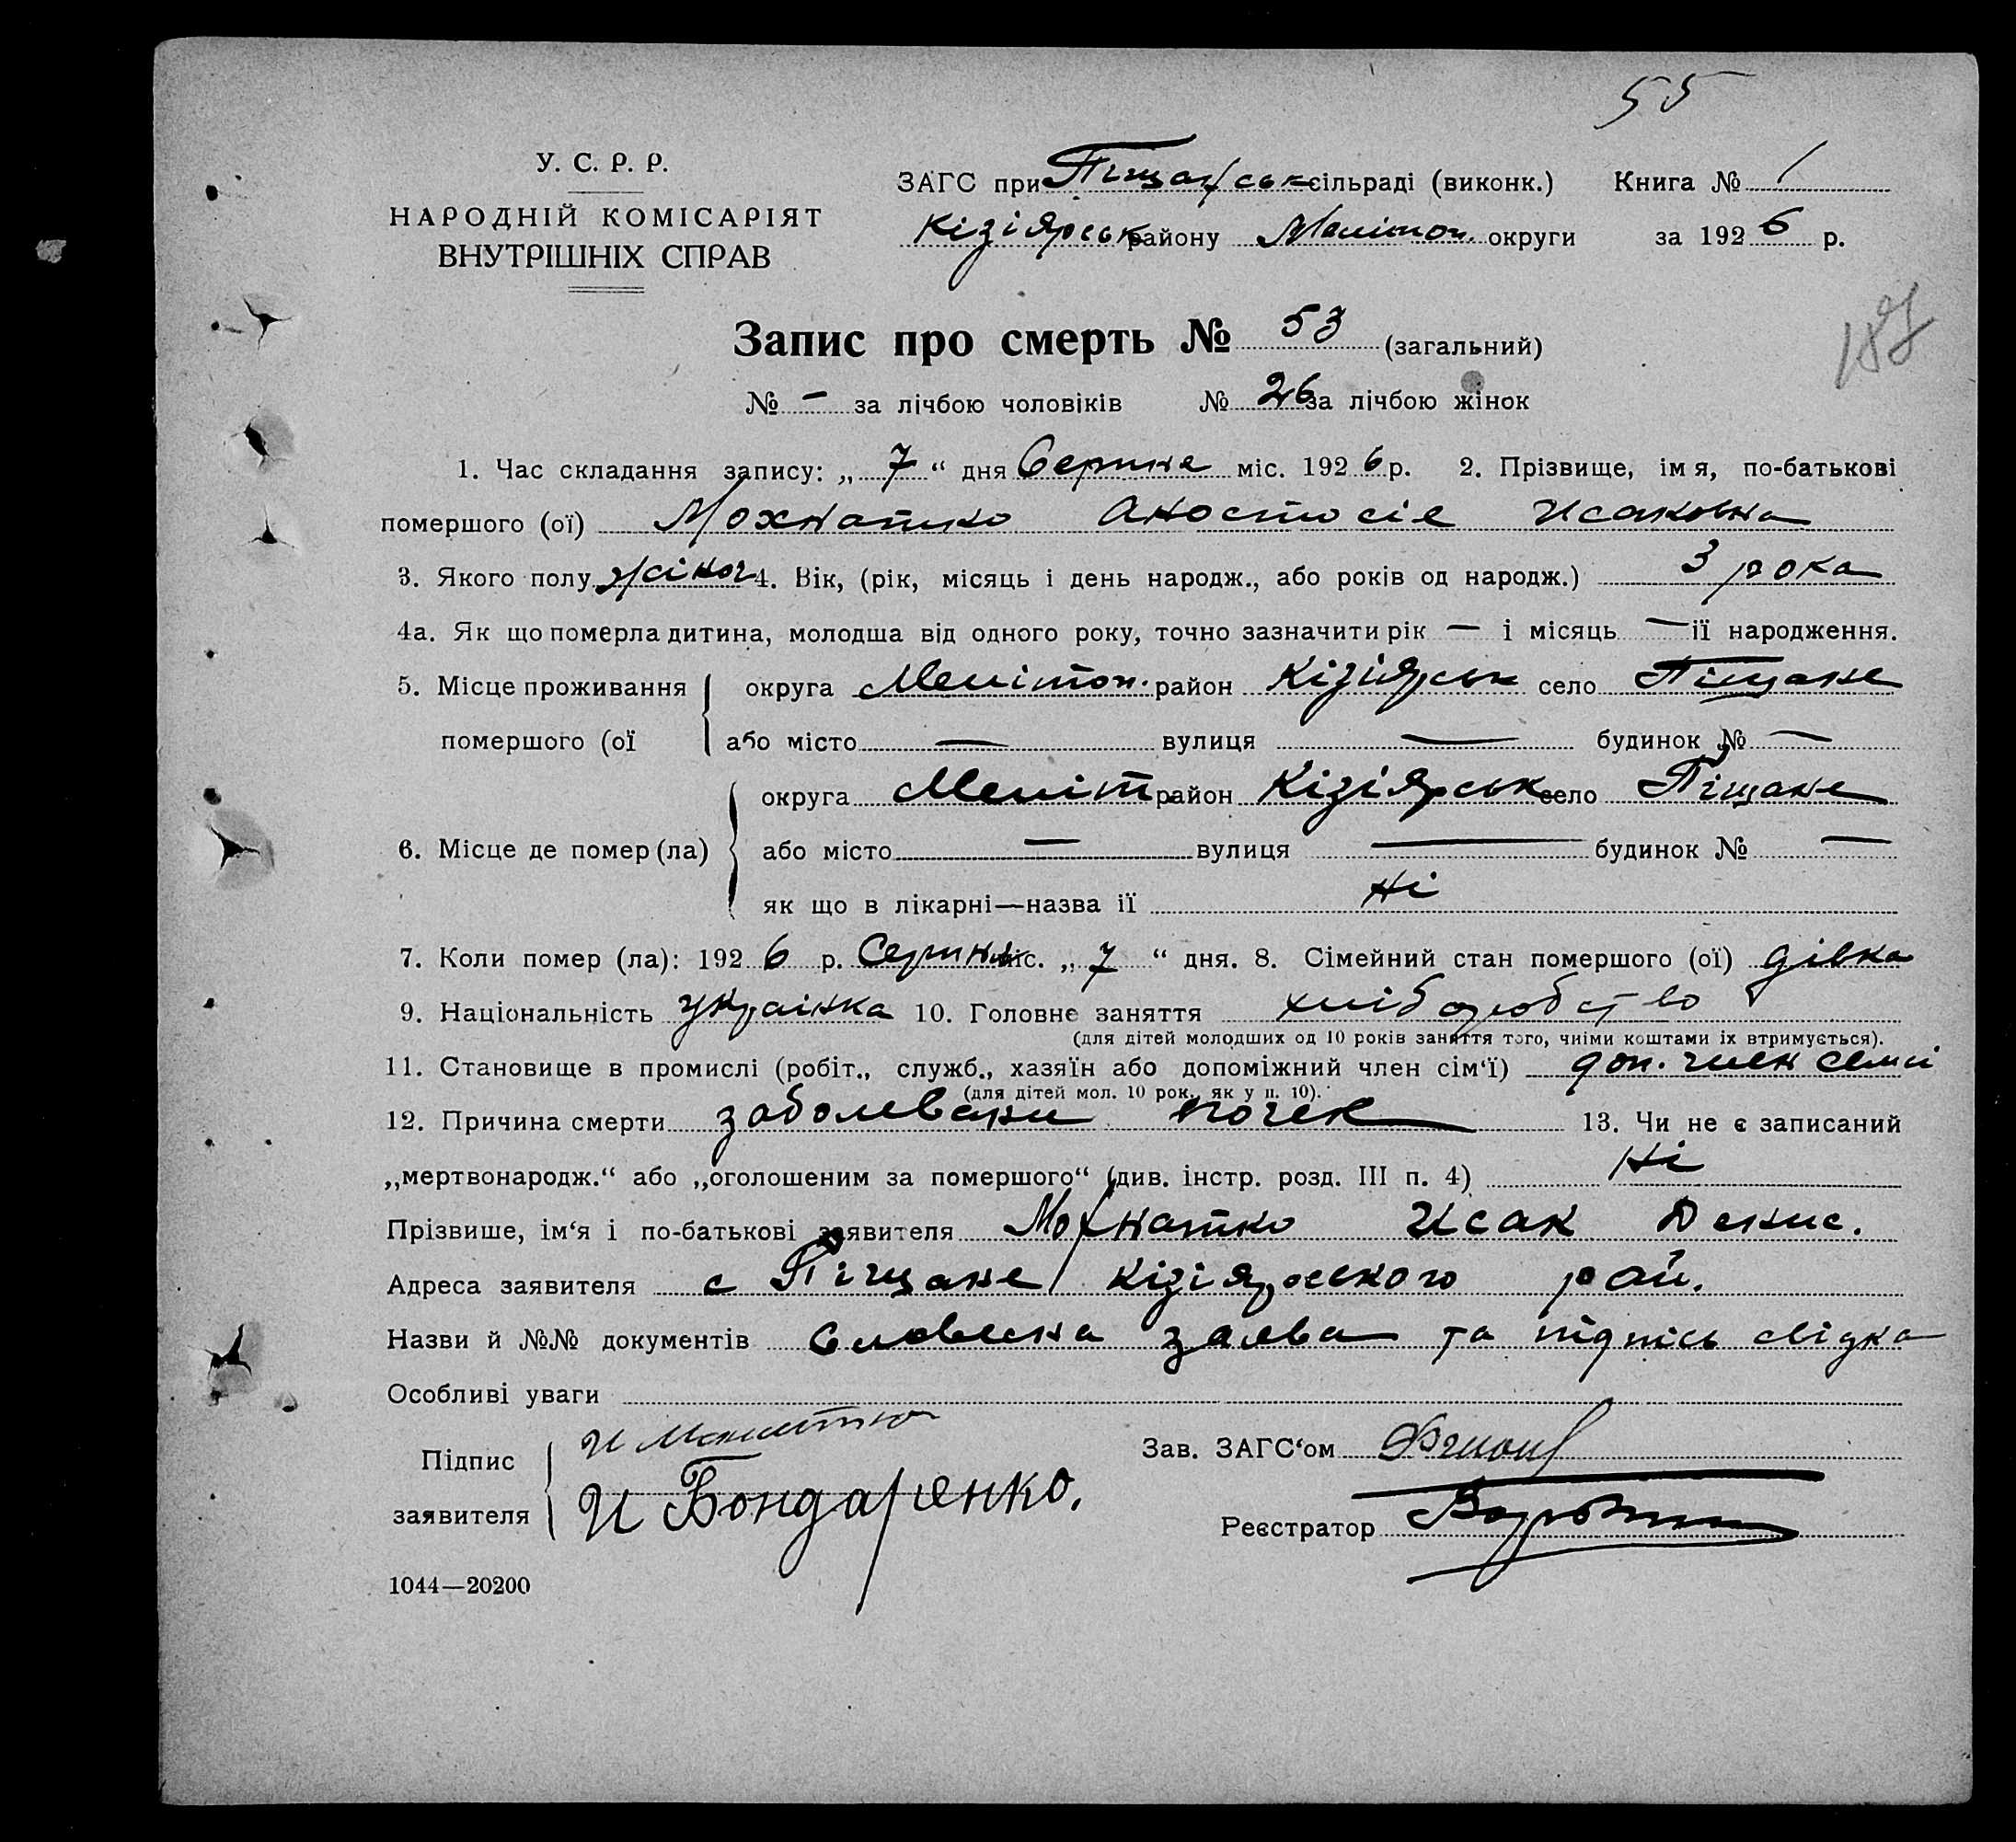 55
У. С. Р. Р.
НАРОДНІЙ КОМІСАРІЯТ
ВНУТРІШНІХ СПРАВ
ЗАГС при Піщанськ сільраді (виконк.) Книга № 1
Кізіярськ району Мелітоп. округи за 1926 р.
Запис про смерть № 53 (загальний)
№ — за лічбою чоловіків № 26 за лічбою жінок
1. Час складання запису: „ 7 “ дня Серпня міс. 1926 р. 2. Прізвище, імя, по-батькові
помершого (ої) Мохнатко Аностосіе Исаковна
3. Якого полу жіноч 4. Вік, (рік, місяць і день народж., або років од народж.) 3 рока
4а. Як що померла дитина, молодша від одного року, точно зазначити рік — і місяць — ії народження.
5. Місце проживання округа Мелітоп. район Кізіярськ село Піщане
помершого (ої або місто — вулиця — будинок № —
округа Меліт район Кізіярськ село Піщане
6. Місце де помер (ла) або місто — вулиця — будинок № —
як що в лікарні—назва ії Ні
7. Коли помер (ла): 1926 р. Серпня міс. „ 7 “ дня. 8. Сімейний стан помершого (ої) дівка
9. Національність українка 10. Головне заняття хліборобство
(для дітей молодших од 10 років заняття того, чиїми коштами їх втримується).
11. Становище в промислі (робіт., служб., хазяїн або допоміжний член сім‘ї) доп. член семи
(для дітей мол. 10 рок., як у п. 10).
12. Причина смерти заболевани почек 13. Чи не є записаний
„мертвонародж.“ або „оголошеним за помершого“ (див. інстр. розд. III п. 4) Ні
Прізвише, ім‘я і по-батькові заявителя Мохнатко Исак Денис.
Адреса заявителя с Піщане Кізіярського рай.
Назви й №№ документів Словесна заява та підпісь свідка
Особливі уваги
Підпис И Мохнатко Зав. ЗАГС‘ом
заявителя И Бондаренко. Реєстратор
1044—20200